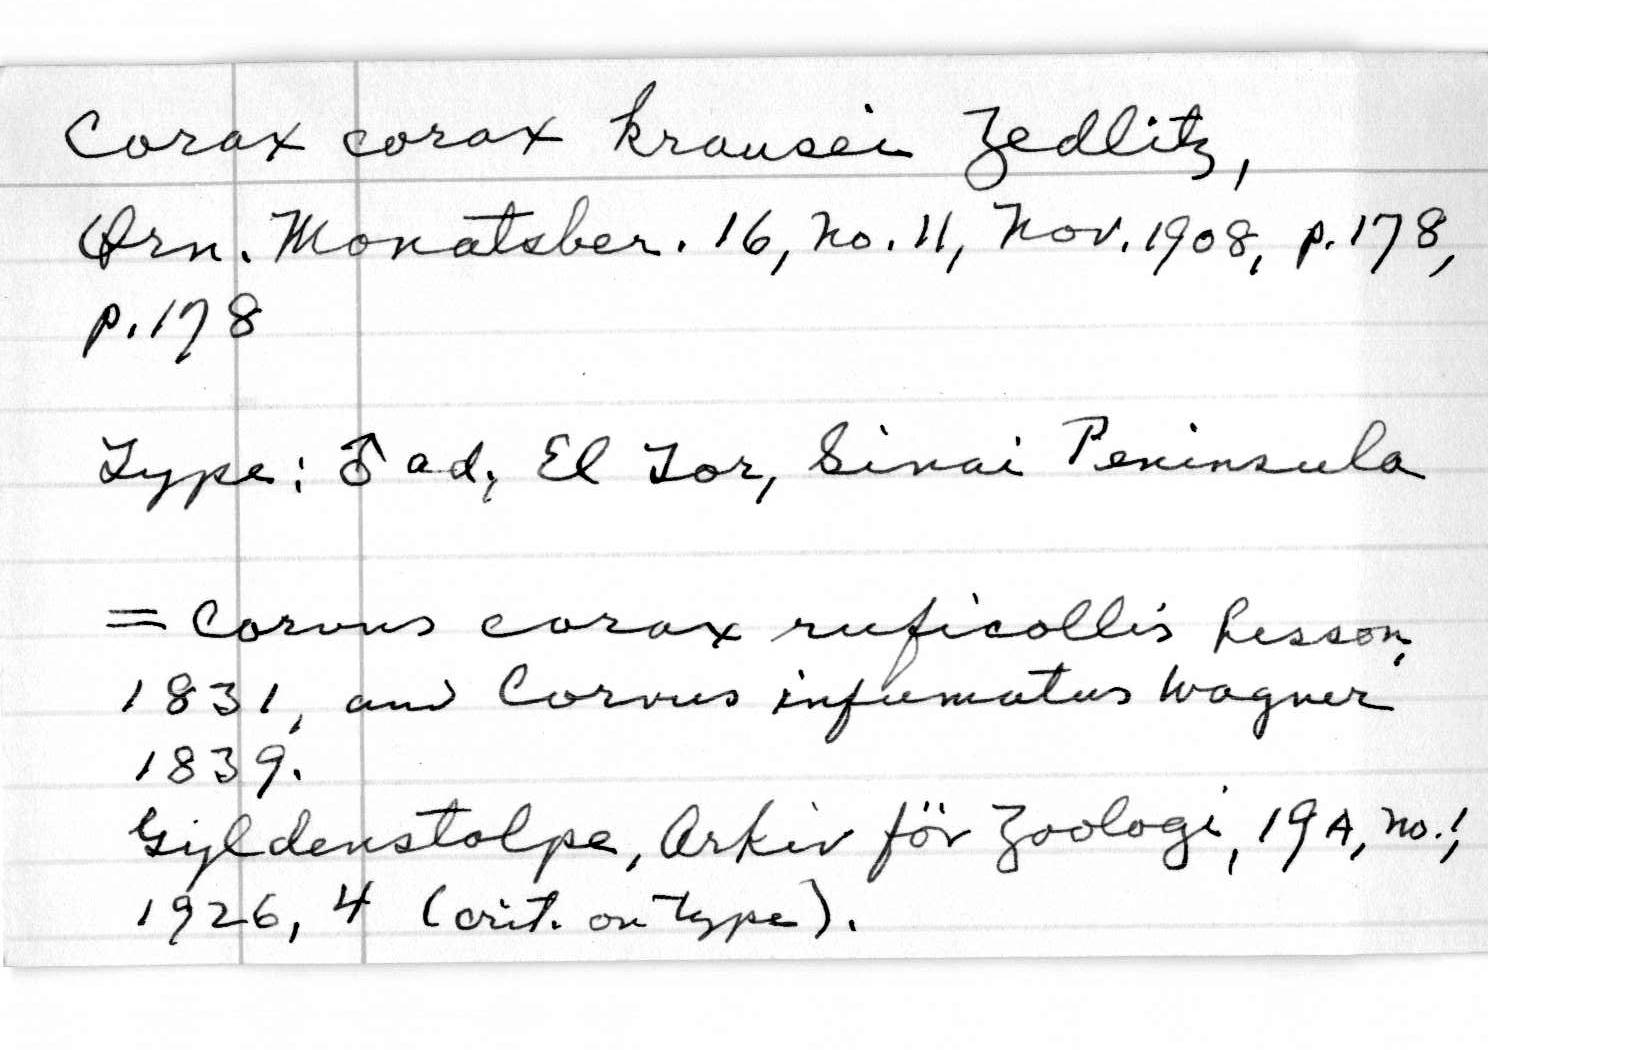 Corax corax krausei Zedlitz,
Orn. Monatsber. 16, no. 11, Nov. 1908, p. 178,
p. 178
Type: ♂ ad, El Tor, Sinai Peninsula
= Corvus corax ruficollis Lesson,
1831, and Corvus infumatus Wagner
1839.
Gyldenstolpe, Arkiv för Zoologi, 19A, no. 1,
1926, 4 (crit. on type).